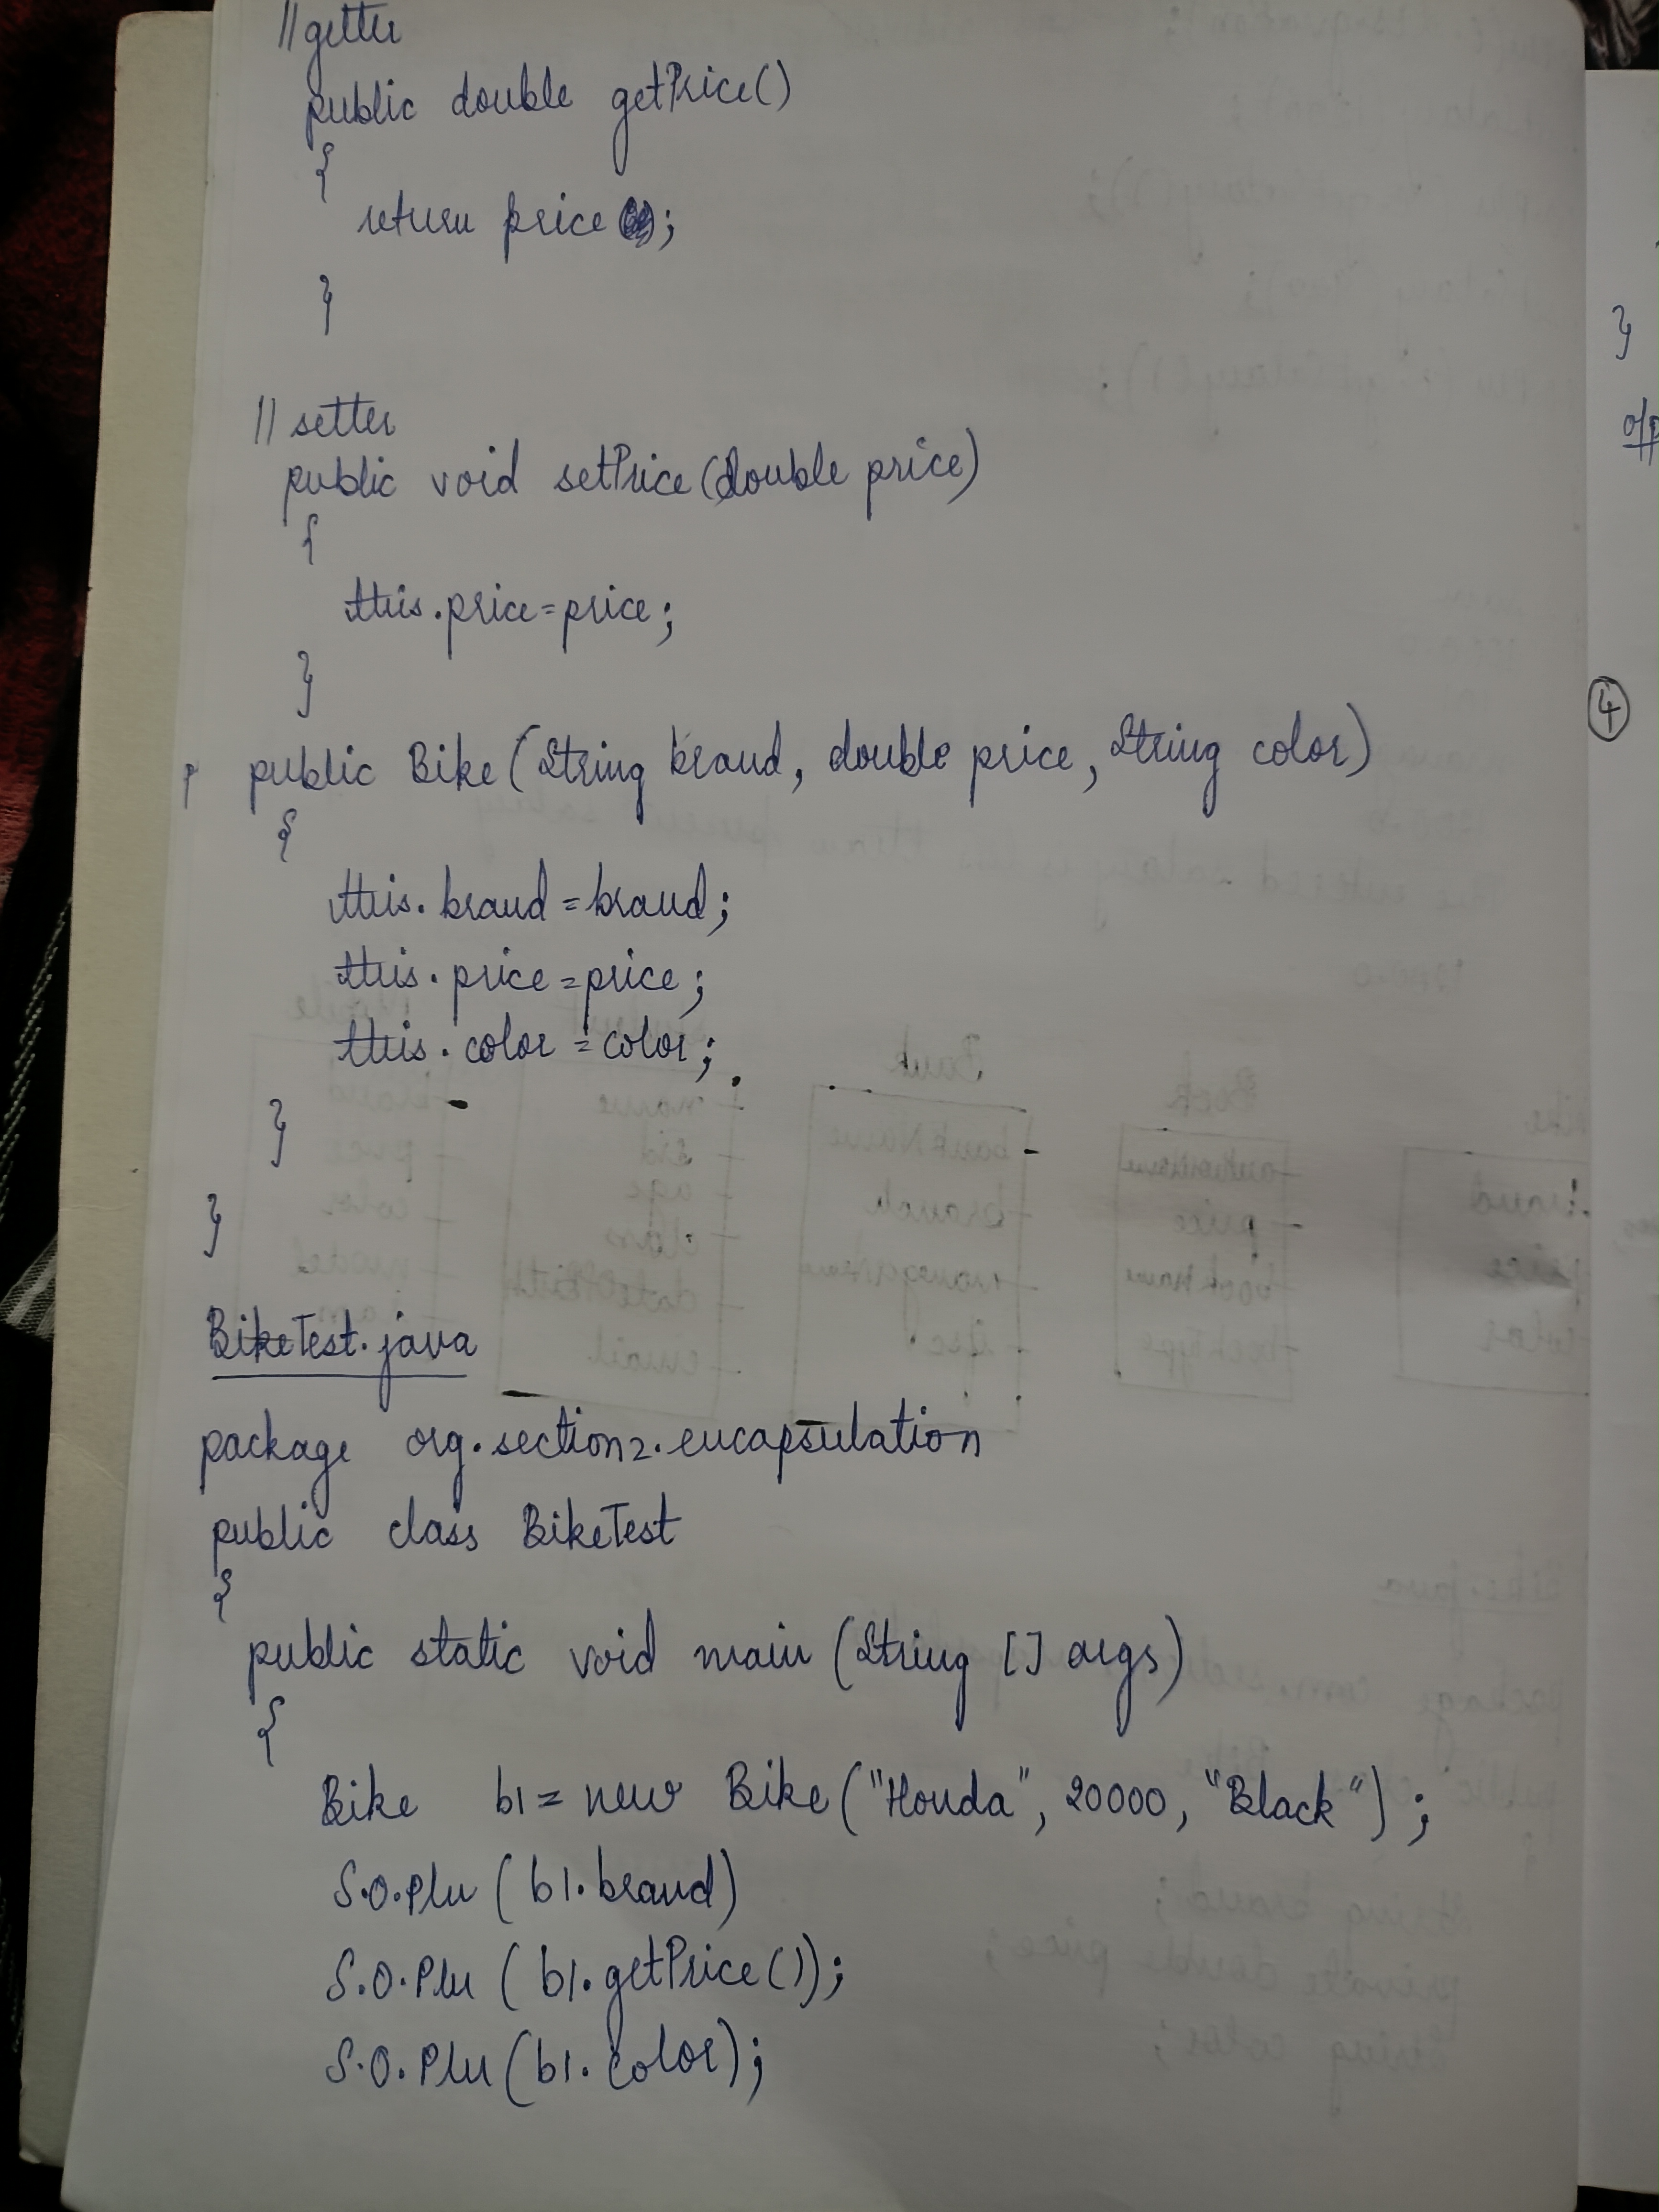 //getter
public double getPrice()
{
return price ;
}
// setter
public void setPrice(double price)
{
this.price=price;
}
public Bike(String brand, double price, String color)
{
this.brand=brand;
this.price=price;
this.color=color;
}
}
BikeTest.java
package org.section2.encapsulation
public class BikeTest
{
public static void main (String [] args)
{
Bike b1= new Bike("Honda", 20000, "Black");
S.O.Pln (b1.brand)
S.O.Pln (b1.getPrice());
S.O.Pln (b1.color);
}
o/p
4